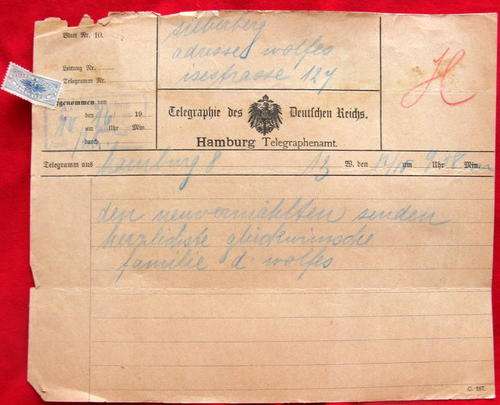 Blatt Nr. 10.
silberberg
adresse wolfes
isestrasse 127
Leitung Nr.
Telegramm Nr.
genommen von
den 19
um Uhr Min.
durch
Telegraphie des Deutschen Reichs.
Hamburg Telegraphenamt.
Telegramm aus hamburg 8 13 W. den um Uhr Min.
den neuvermählten senden
herzlichste glückwünsche
familie d. wolfes
C. 187.